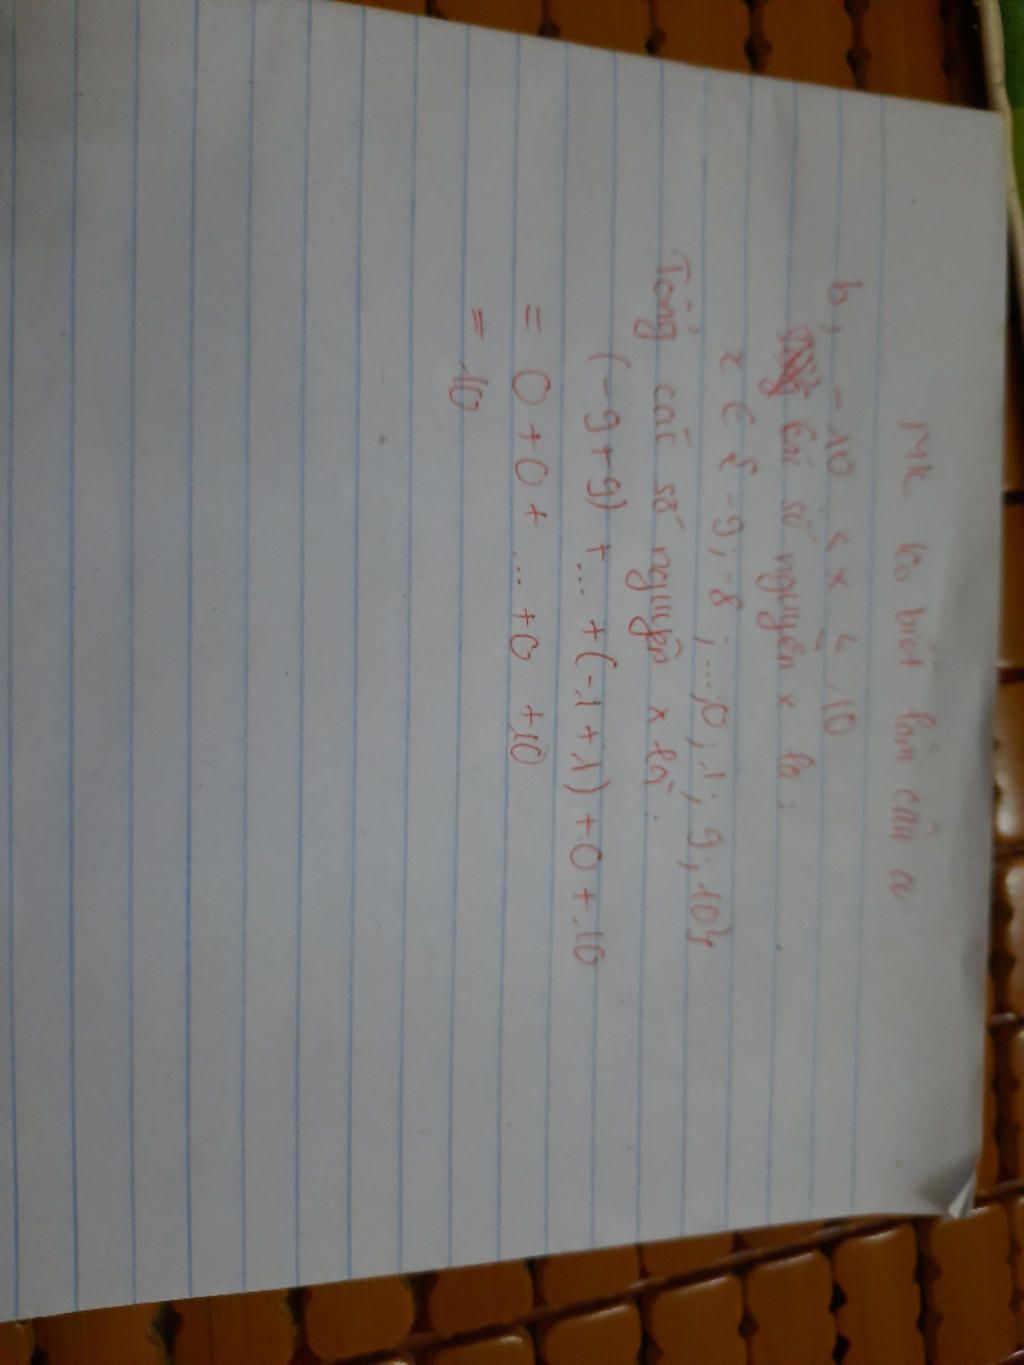 Mk ko biết làm câu a
b, -10 < x ≤ 10
Các số nguyên x là:
x ∈ {-9; -8; ...; 0; 1; 9; 10}
Tổng các số nguyên x là:
(-9+9) + ... + (-1+1) + 0 + 10
= 0 + 0 + ... + 0 + 10
= 10